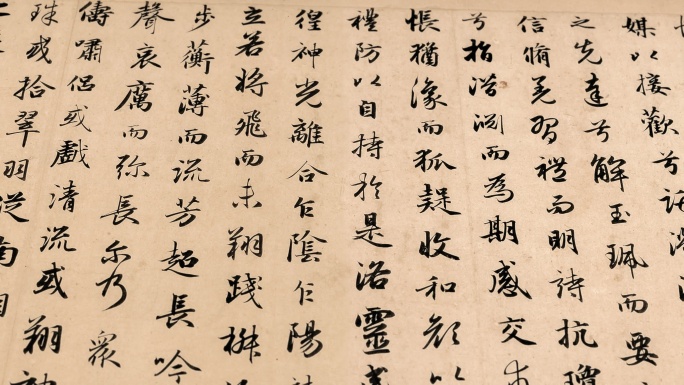 媒以接歡兮託
之先達兮解玉珮而要
信脩羌習禮而明詩抗瓊
兮指潛淵而為期感交
悵猶豫而狐疑收和顏以
禮防以自持於是洛靈
徨神光離合乍陰乍陽
立若將飛而未翔踐椒
步蘅薄而流芳超長吟
聲哀厲而彌長爾乃眾
儔嘯侶或戲清流或翔神
珠或拾翠羽從南湘